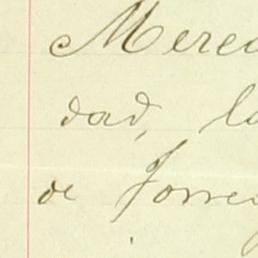 Mere
dad, l
de Torre